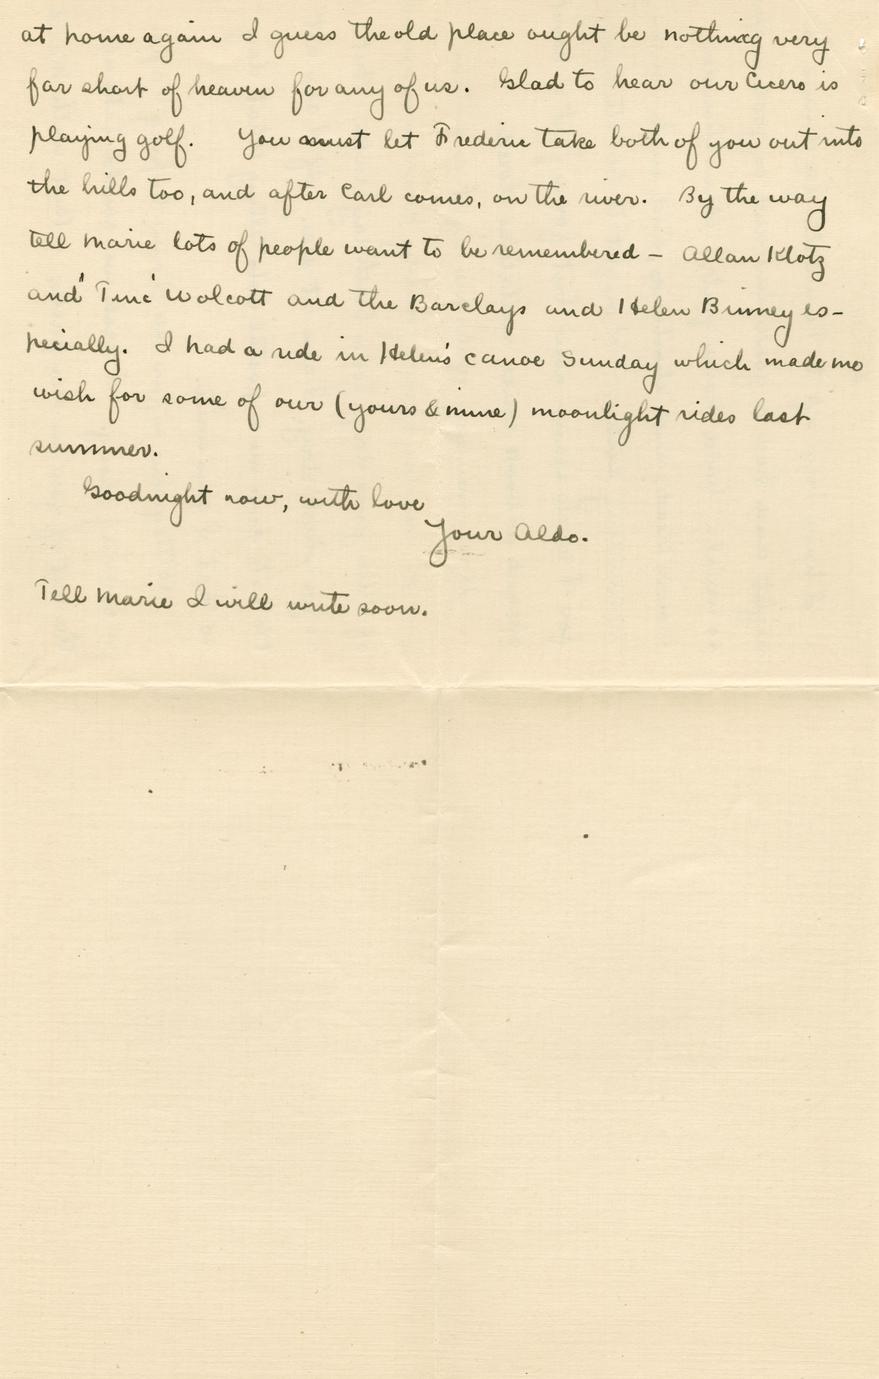 at home again I guess the old place ought be nothing very
far short of heaven for any of us. Glad to hear our Cicero is
playing golf. You must let Frederic take both of you out into
the hills too, and after Carl comes, on the river. By the way
tell Marie lots of people want to be remembered – Allan Klotz
and "Tine" Wolcott and the Barclays and Helen Binney es-
pecially. I had a ride in Helen's canoe Sunday which made me
wish for some of our (yours & mine) moonlight rides last
summer.
Goodnight now, with love
Your Aldo.
Tell Marie I will write soon.